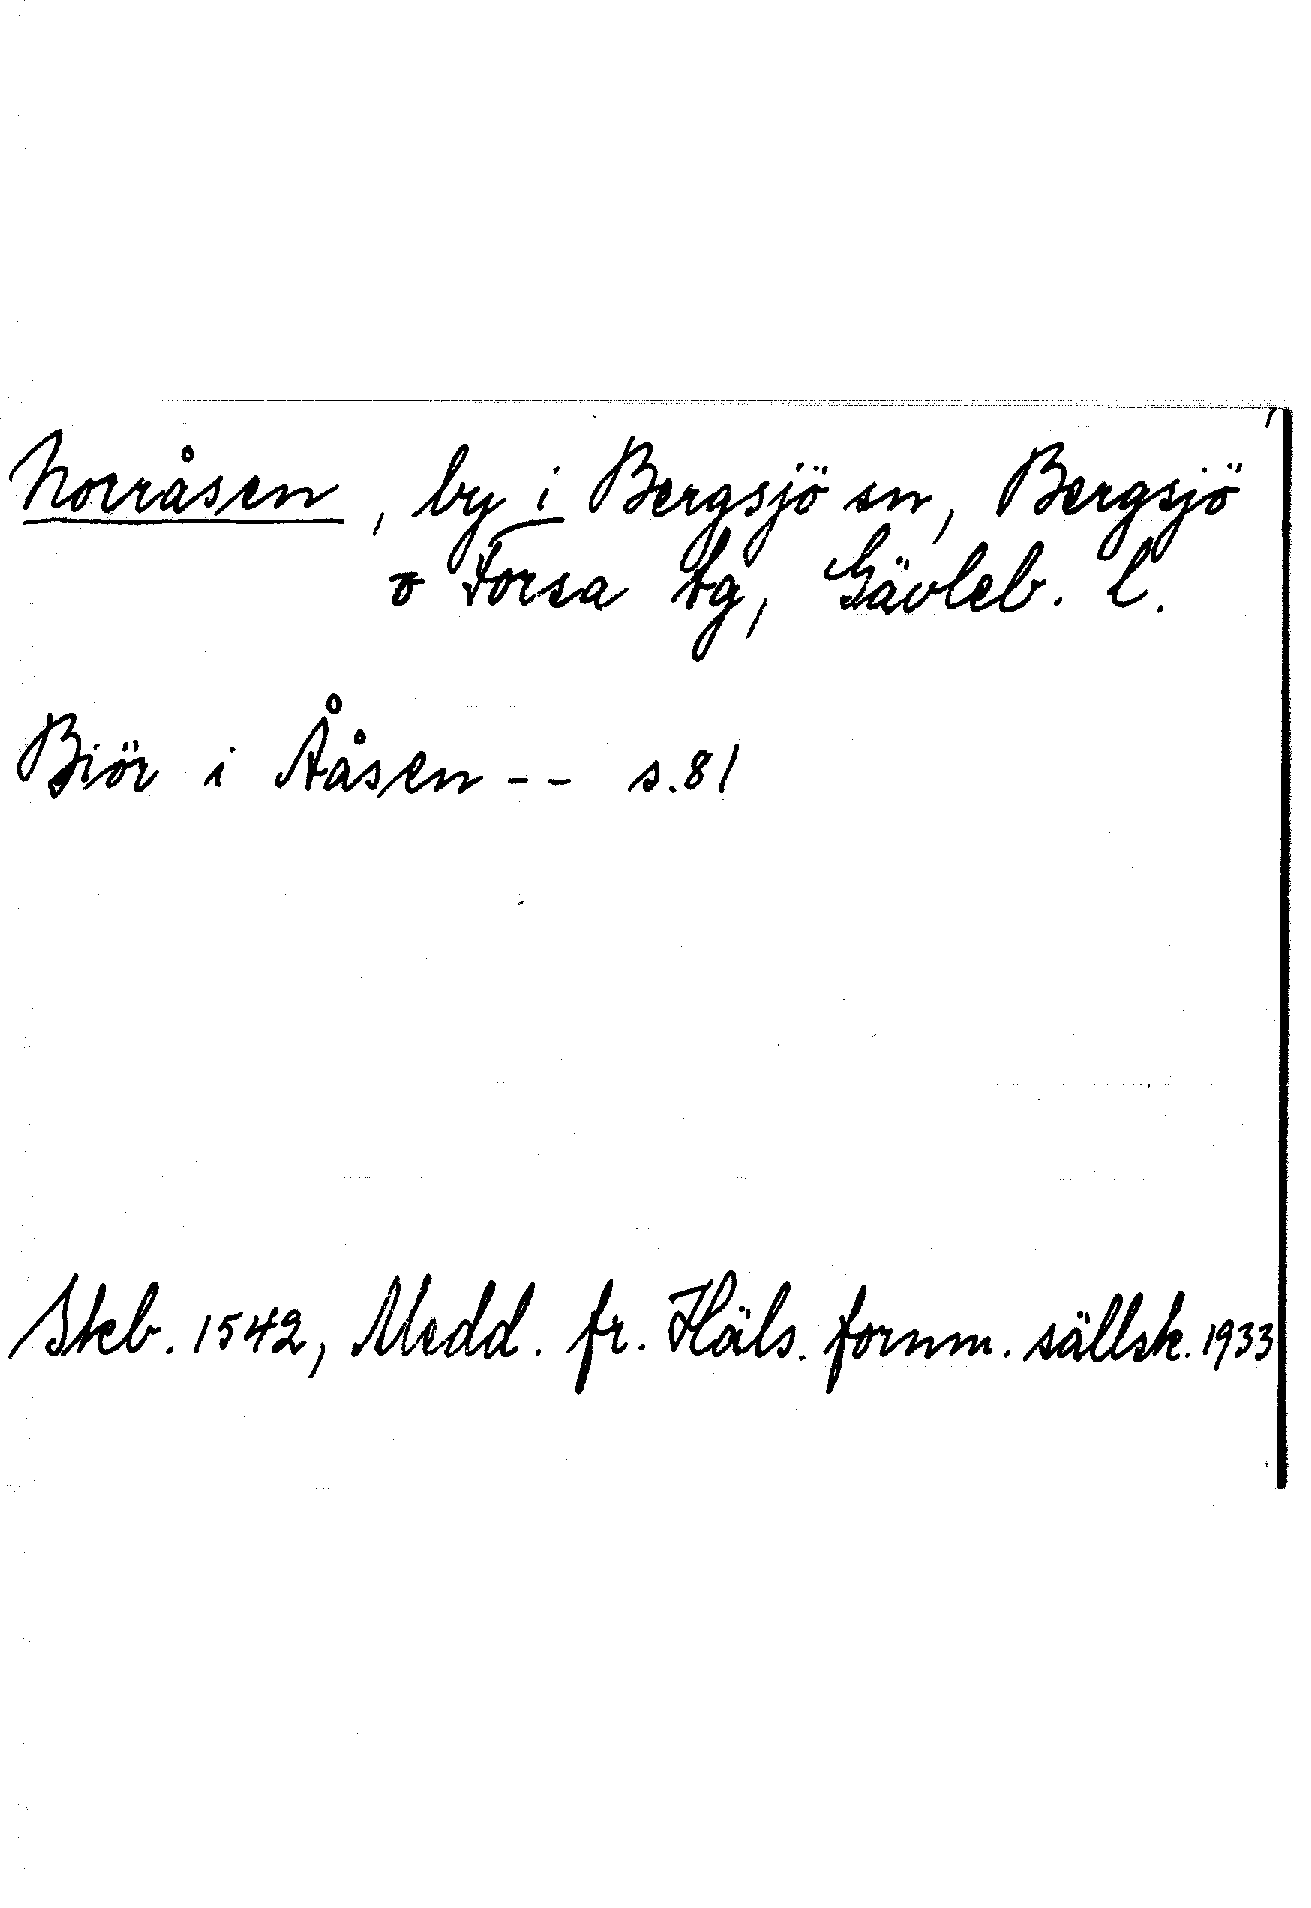 Norråsen, by i Bergsjö sn, Bergsjö
o Forsa tg, Gävleb. l.
Biör i Ååsen -- s.81
Skeb. 1542, Medd. fr. Häls. fornm. sällsk. 1933